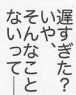 遅すぎた？
いや、
そんなこと
ないって──